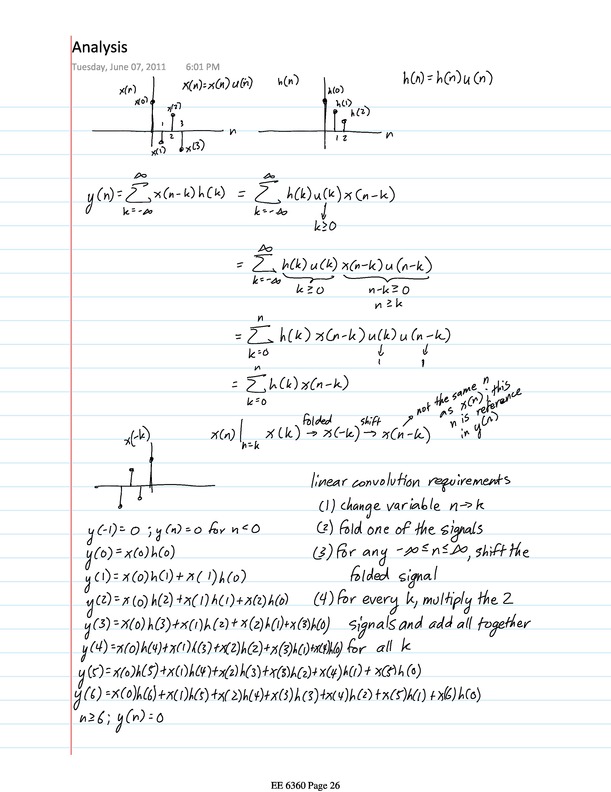 Analysis
Tuesday, June 07, 2011 6:01 PM
x(n) x(n)=x(n)u(n) h(n) h(n)=h(n)u(n)
x(0) x(2) h(0) h(1) h(2)
1 2 3 n 1 2 n
x(1) x(3)
y(n) = ∞Σk=-∞ x(n-k)h(k) = ∞Σk=-∞ h(k)u(k)x(n-k)
↓
k≥0
= ∞Σk=-∞ h(k)u(k) x(n-k)u(n-k)
k≥0 n-k≥0
n≥k
= nΣk=0 h(k) x(n-k)u(k)u(n-k)
↓ ↓
1 1
= nΣk=0 h(k)x(n-k)
x(n)|n=k x(k) folded→ x(-k) shift→ x(n-k) → not the same n as x(n); this n is reference in y(n)
x(-k)
linear convolution requirements
(1) change variable n→k
(2) fold one of the signals
(3) for any -∞≤n≤∞, shift the
folded signal
(4) for every k, multiply the 2
signals and add all together
for all k
y(-1)=0 ; y(n)=0 for n<0
y(0)=x(0)h(0)
y(1)=x(0)h(1)+x(1)h(0)
y(2)=x(0)h(2)+x(1)h(1)+x(2)h(0)
y(3)=x(0)h(3)+x(1)h(2)+x(2)h(1)+x(3)h(0)
y(4)=x(0)h(4)+x(1)h(3)+x(2)h(2)+x(3)h(1)+x(4)h(0)
y(5)=x(0)h(5)+x(1)h(4)+x(2)h(3)+x(3)h(2)+x(4)h(1)+x(5)h(0)
y(6)=x(0)h(6)+x(1)h(5)+x(2)h(4)+x(3)h(3)+x(4)h(2)+x(5)h(1)+x(6)h(0)
n≥6; y(n)=0
EE 6360 Page 26